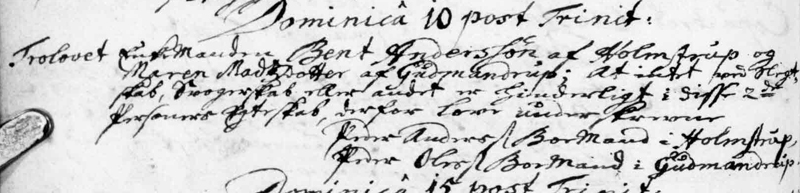 Dominicâ 10 post Trinit:
Trolovet EnkeManden Bent Anderssøn af Holmstrup og
Maren Madsdotter af Gudmandrup: At intet ved Slegt-
skab, Svogerskab eller andet er hinderligt i disse 2de
Personers Egteskab, derfor love under skrevne
Peder Anders: BoeMand i Holmstrup,
Peder Oles: BoeMand i Gudmandrup.
Dominicâ 15 post Trinit: